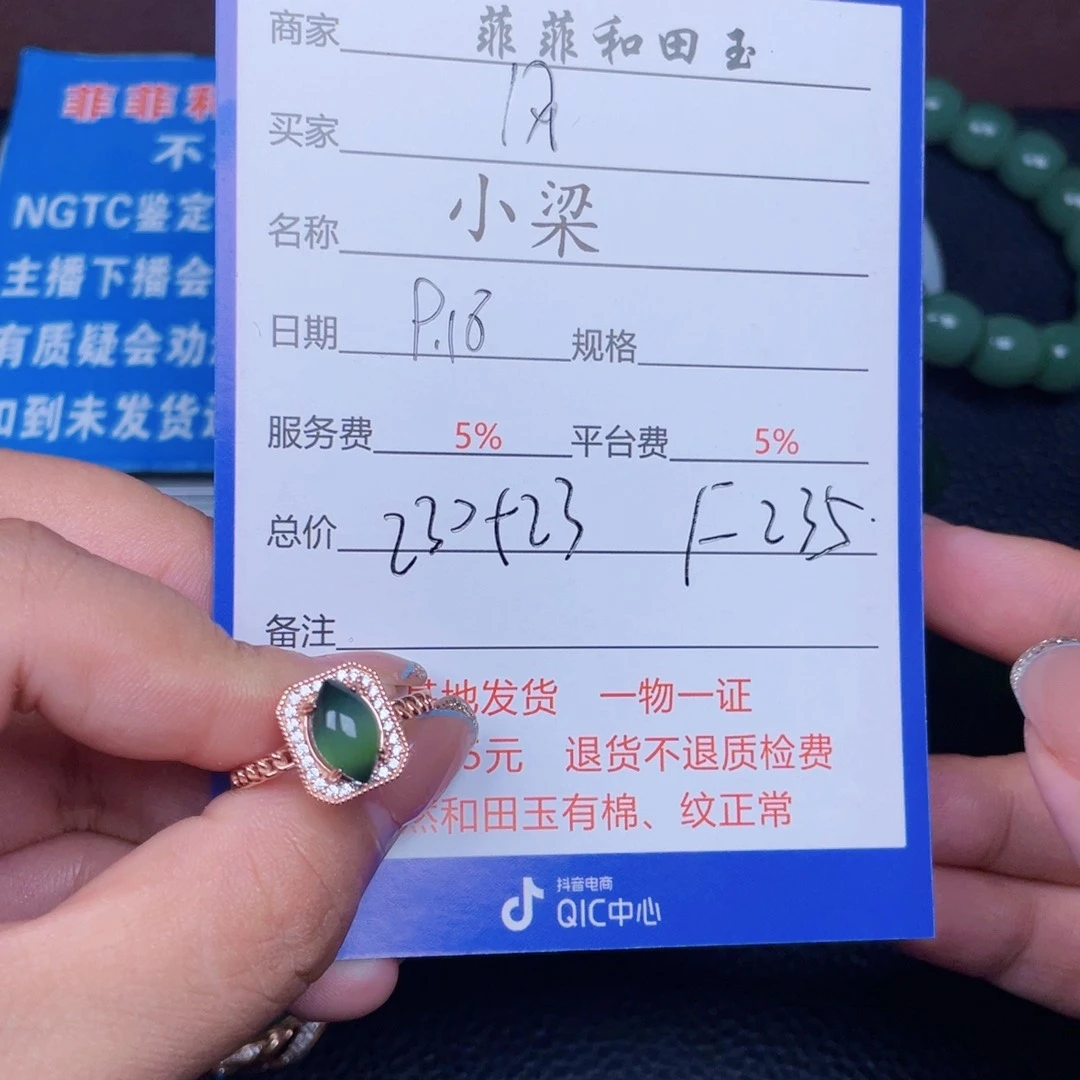 商家 菲菲和田玉
买家
名称 小梁
日期 规格
服务费 5% 平台费 5%
总价 230+23 F=235
备注
基地发货 一物一证
5元 退货不退质检费
然和田玉有棉、纹正常
抖音电商
QIC中心
菲菲和
不
NGTC鉴定
主播下播会
有质疑会劝
到未发货